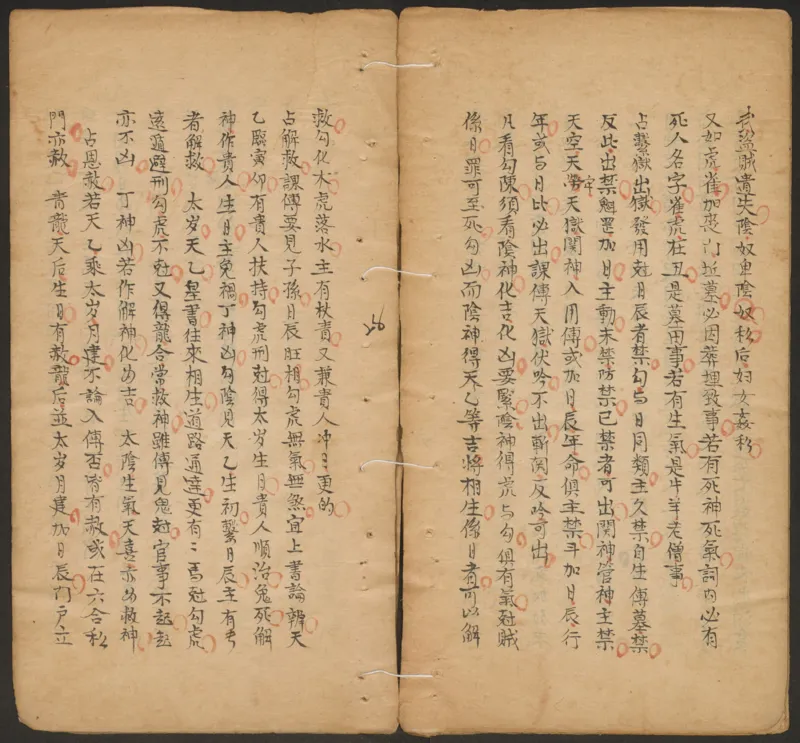 武盜賊遺失陰奴車陰奴私后妇女姦私
又如虎雀加丧门近墓必因葬埋致事若有死神死氣詞内必有
死人名字雀虎柱丑是墓田事若有生氣是牛羊老僧事
占繫獄出獄發用尅日辰者禁勾与日同類主久禁自生傳墓禁
反此出禁魁罡加日主動未禁防禁已禁者可出関神管神主禁
天空天牢天獄関神入用傳或加日辰年命俱主禁斗加日辰行
年或与日比必出課傳天獄伏吟不出斬関反吟可出
凡看勾陳須看陰神化吉化凶要緊陰神得虎与勾俱有氣尅賊
係日罪可至死勾凶而陰神得天乙等吉将相生係日者可以解
救勾化木虎落水主有杖责又兼貴人冲〻更的
占解救課傳要見子孫日辰旺相勾虎無氣無煞宜上書論辯天
乙臨寅卯有貴人扶持勾虎刑尅得太岁生日貴人順治鬼死解
神作貴人生日主免禍丁神凶勾陰見天乙生初繫日辰主有
者解救　太岁天乙皇書往來相生道路通達更有〻馬尅勾虎
遠遁避刑勾虎不尅又得龍合常救神雖傳見鬼尅官事不起
亦不凶　丁神凶若作解神化为吉　太陰生氣天喜亦为救神
占恩赦若天乙乘太岁月建不論入傳否皆有赦或在六合私
門亦赦　青龍天后生日有赦龍后並太岁月建加日辰门户立